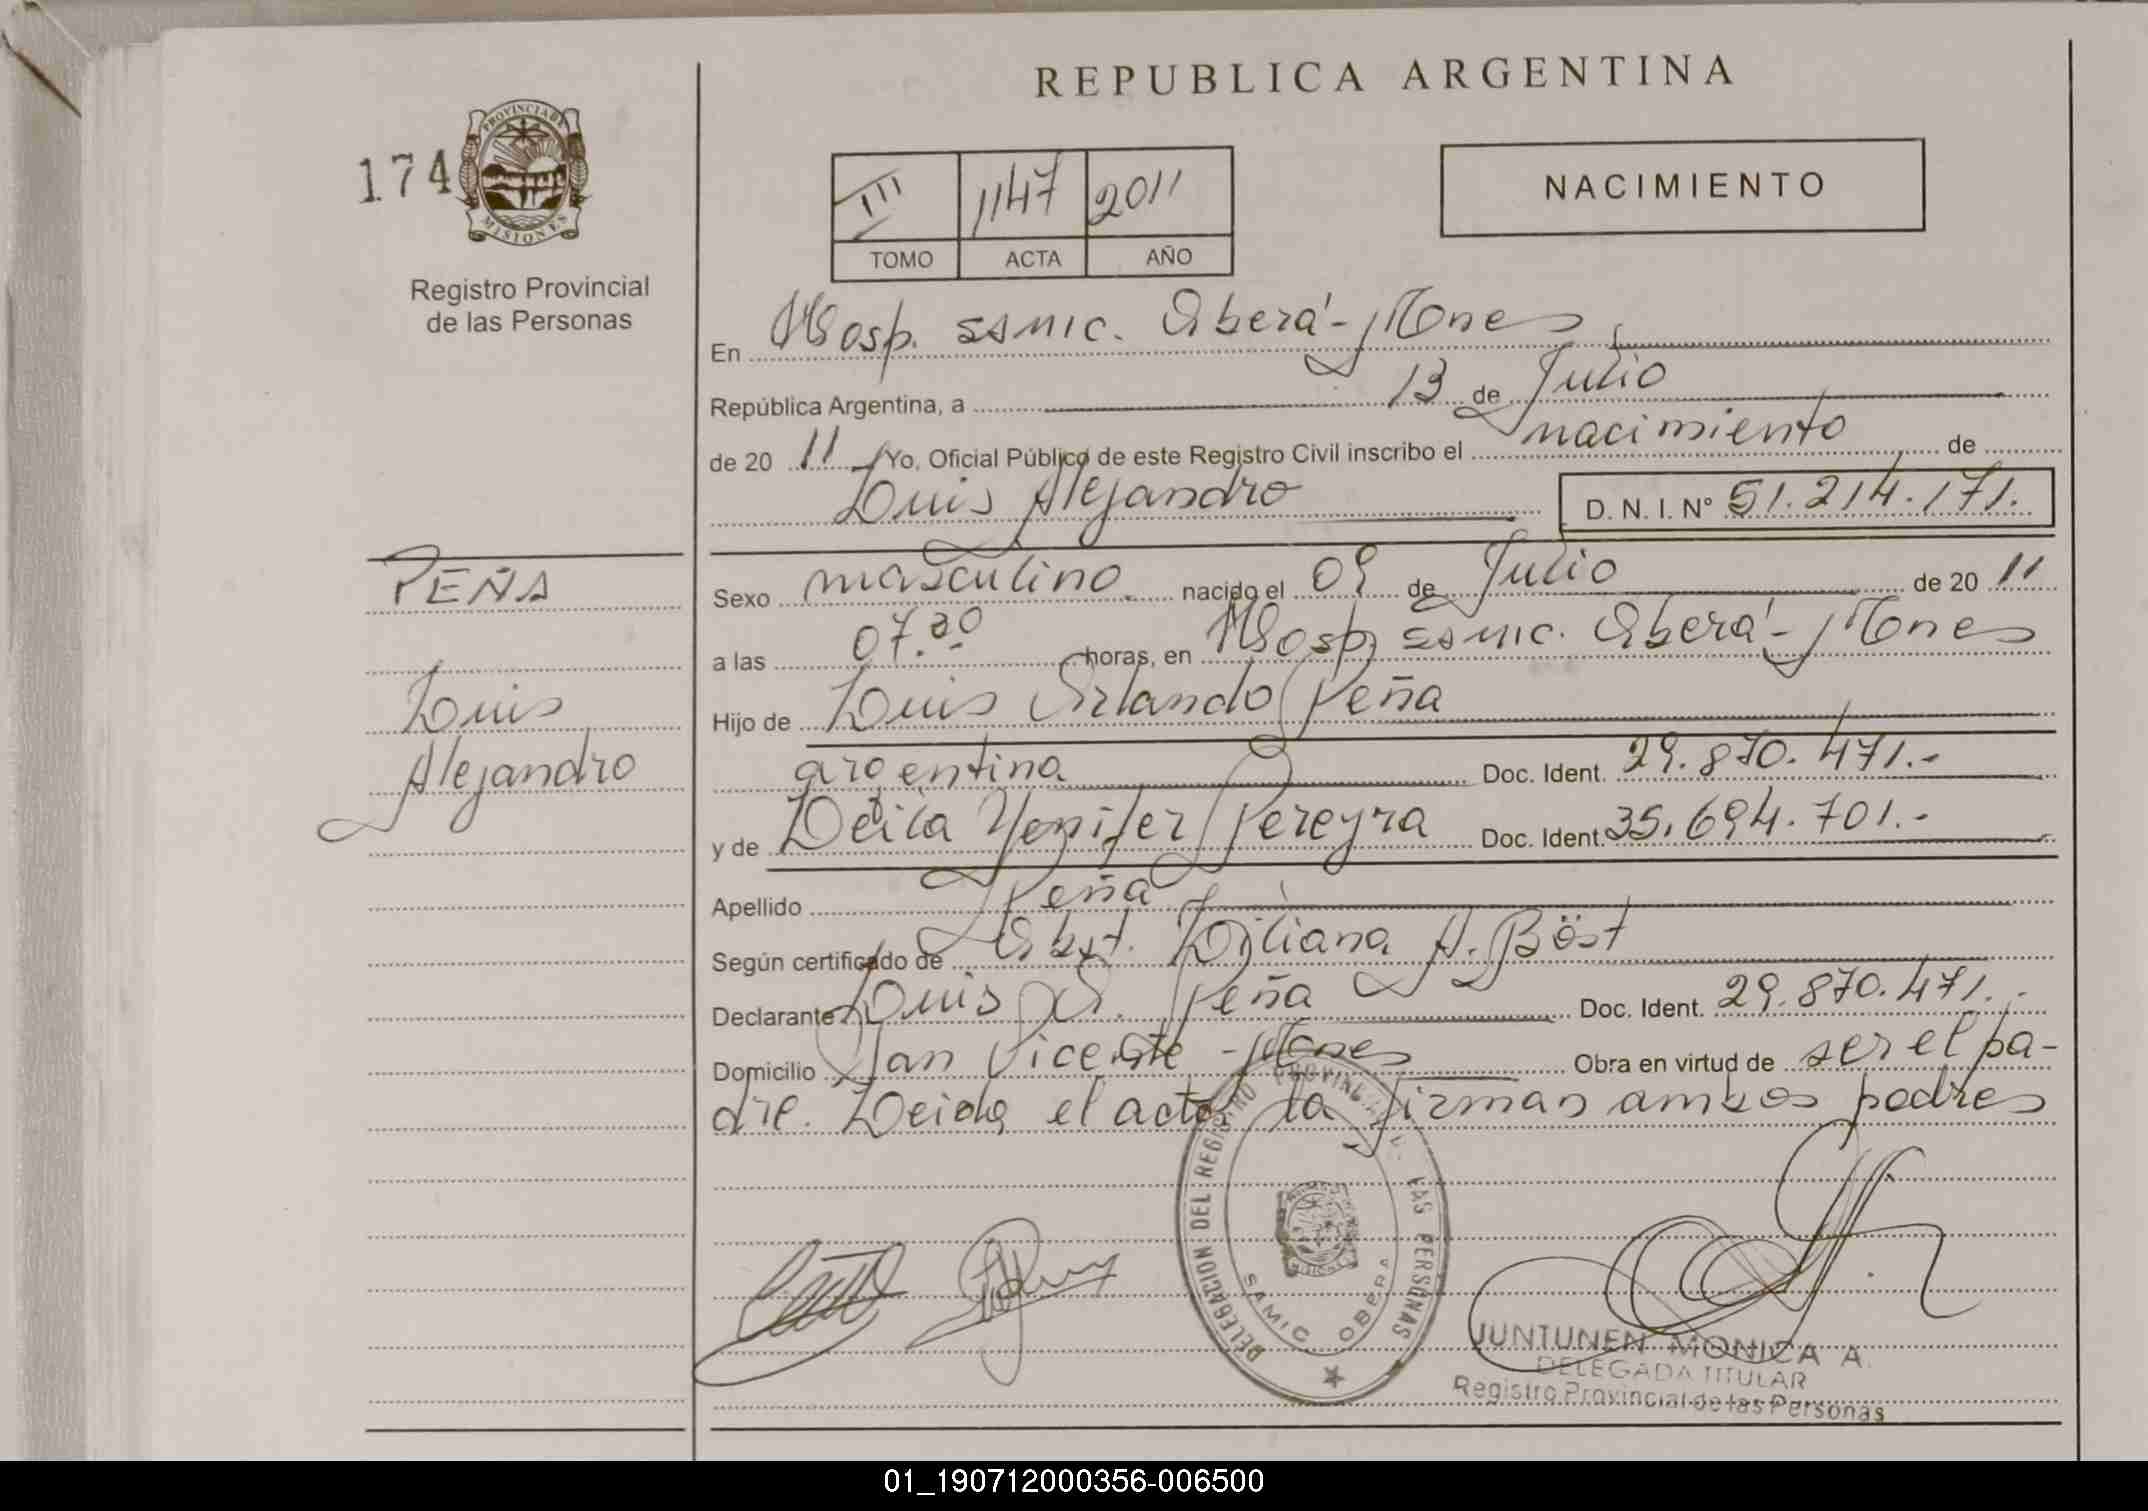 REPUBLICA ARGENTINA
174
PROVINCIA DE
MISIONES
Registro Provincial
de las Personas
III 1147 2011
TOMO ACTA AÑO
NACIMIENTO
En Hosp. SAMIC. Oberá - Mnes
República Argentina, a 13 de Julio
de 20 11 Yo, Oficial Público de este Registro Civil inscribo el nacimiento de
Luis Alejandro D. N. I. N° 51.214.171.
PEÑA
Luis
Alejandro
Sexo masculino. nacido el 09 de Julio de 20 11
a las 07.30 horas, en Hosp. SAMIC. Oberá - Mnes
Hijo de Luis Orlando Peña
argentina Doc. Ident. 29.870.471.-
y de Leila Yenifer Pereyra Doc. Ident. 35.694.701.-
Apellido Peña
Según certificado de Obst. Liliana A. Böst
Declarante Luis O. Peña Doc. Ident. 29.870.471.-
Domicilio San Vicente - Mnes Obra en virtud de ser el pa-
dre. Leida el acta la firman ambos padres
DELEGACION DEL REGISTRO PROVINCIAL DE LAS PERSONAS
SAMIC OBERA
JUNTUNEN MONICA A.
DELEGADA TITULAR
Registro Provincial de las Personas
01_190712000356-006500